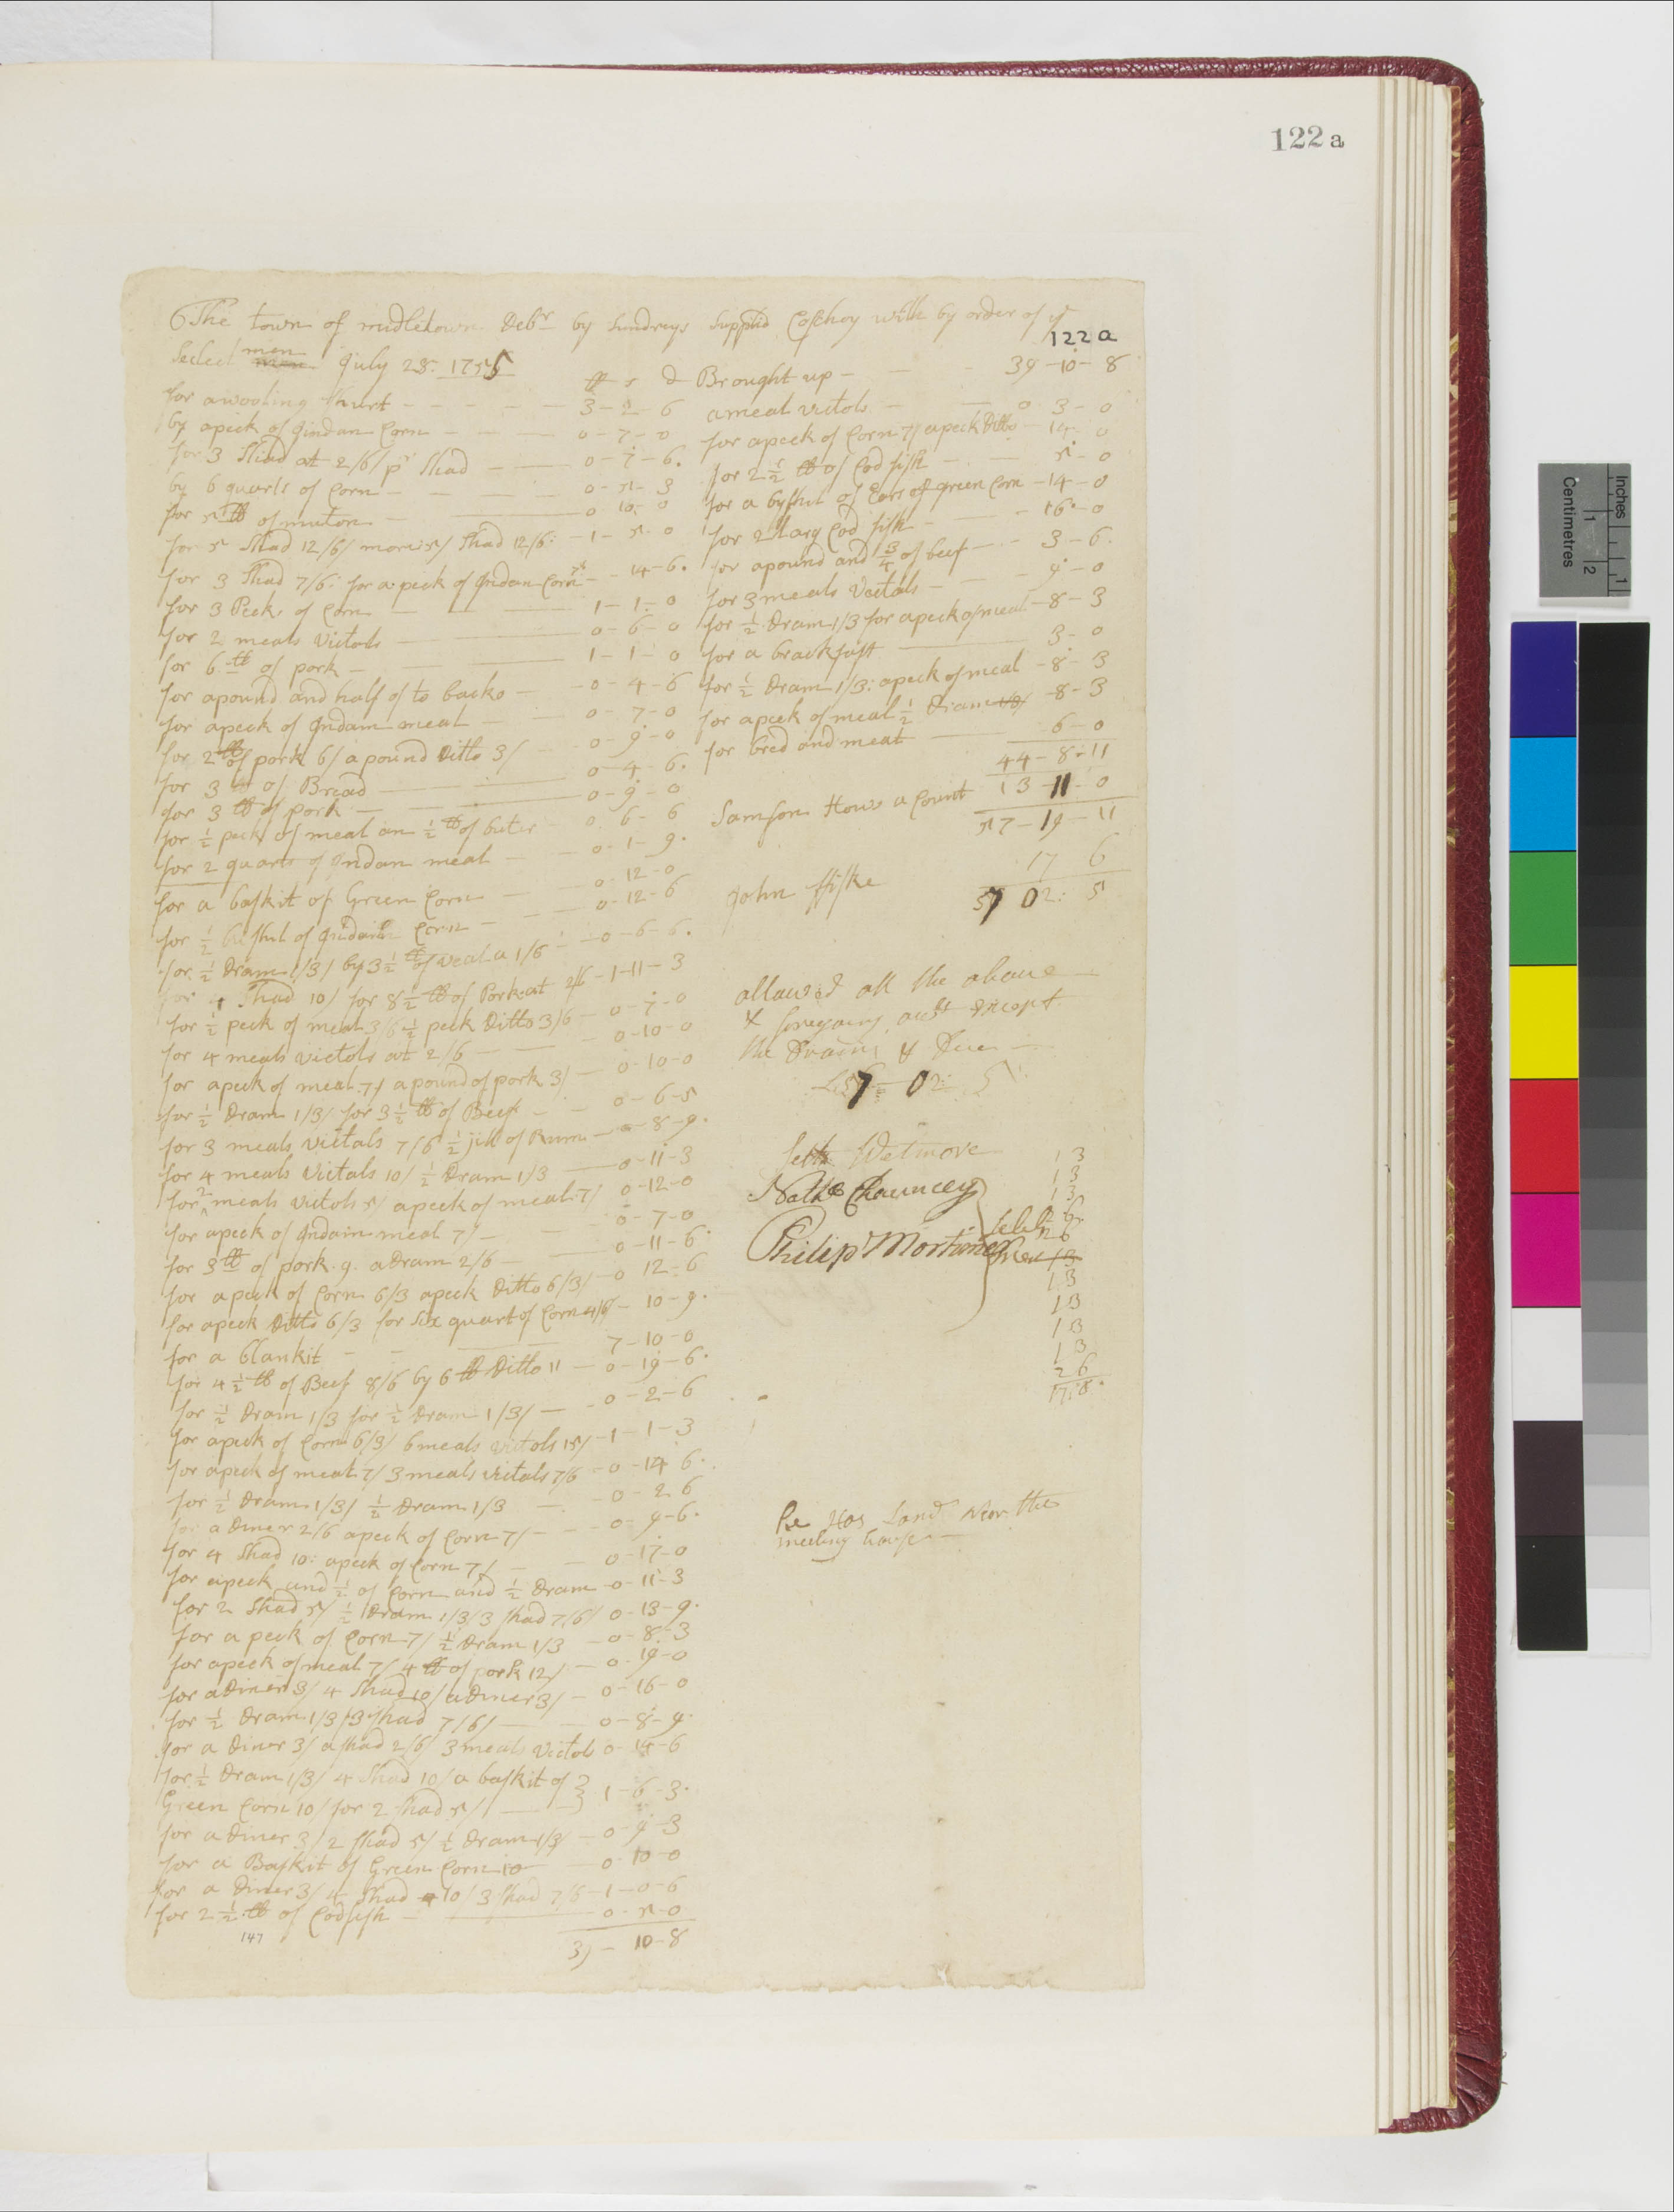 122 a
The town of midletown Debr by Sundreys Supplid Coschoy with by order of ye
122 a
Select men July 28: 1755
for a wooling Shurt - 3-2-6
by apeck of Jindan Corn - 0-7-0
for 3 Shad at 2/6/ pr Shad - 0-7-6
by 6 quarts of Corn - 0-5-3
for 5 lb of muton - 0 10-0
for 5 Shad 12/6/ more 5/ Shad 12/6: - 1-5-0
for 3 Shad 7/6: for a peck of Jndan Corn 7/ - 14-6
for 3 Pecks of Corn - 1-1-0
for 2 meals Victols - 0-6-0
for 6 lb of pork - 1-1-0
for apound and half of to backo - 0-4-6
for apeck of Jndain meal - 0-7-0
for 2 lb of pork 6/ a pound Ditto 3/ - 0-9-0
for 3 lb of Bread - 0-4-6
for 3 lb of pork - 0-9-0
for ½ peck of meal an ½ lb of buter - 0 6-6
for 2 quarts of Jndan meal - 0-1-9
for a baskit of Green Corn - 0-12-0
for ½ bushul of Jndain Corn - 0-12-6
for ½ Dram 1/3/ by 3½ lb of veal a 1/6 - 0-6-6
for 4 Shad 10/ for 8½ lb of Pork at 2/6 - 1-11-3
for ½ peck of meal 3/6 ½ peck Ditto 3/6 - 0-7-0
for 4 meals victols at 2/6 - 0-10-0
for apeck of meal 7/ a pound of pork 3/ - 0-10-0
for ½ Dram 1/3/ for 3½ lb of Beef - 0-6-5
for 3 meals victals 7/6 ½ jill of Rum - 8-9
for 4 meals Victals 10/ ½ Dram 1/3 - 0-11-3
for 2 meals victols 5/ apeck of meal 7/ 0-12-0
for apeck of Jndain meal 7/ - 0-7-0
for 3 lb of pork 9. a Dram 2/6 - 0-11-6
for a peck of Corn 6/3 apeck Ditto 6/3/ - 0 12-6
for apeck Ditto 6/3 for Six quart of Corn 4/6 - 10-9
for a blankit - 7-10-0
for 4½ lb of Beef 8/6 by 6 lb Ditto 11 - 0-19-6
for ½ Dram 1/3 for ½ Dram 1/3/ - 0-2-6
for apeck of Corn 6/3/ 6 meals victols 15/ - 1-1-3
for apeck of meal 7/ 3 meals victals 7/6 - 0-14 6
for ½ Dram 1/3/ ½ Dram 1/3 - 0-2 6
for a Diner 2/6 apeck of Corn 7/ - 0-9-6
for 4 Shad 10: apeck of Corn 7/ - 0-17-0
for apeck and ½ of Corn and ½ Dram - 0-11-3
for 2 Shad 5/ ½ Dram 1/3/3 Shad 7/6/ 0-13-9
for a peck of Corn 7/ ½ Dram 1/3 - 0-8-3
for apeck of meal 7/ 4 lb of pork 12/ - 0-19-0
for a Diner 3/ 4 Shad 10/ a Diner 3/ - 0-16-0
for ½ Dram 1/3/3 Shad 7/6/ - 0-8-9
for a Diner 3/ a Shad 2/6/ 3 meals Victols 0-14-6
for ½ Dram 1/3/ 4 Shad 10/ a baskit of
Green Corn 10/ for 2 Shad 5/ - 1-6-3
for a Diner 3/ 2 Shad 5/ ½ Dram 1/3/ - 0-9-3
for a Baskit of Green Corn 10 - 0-10-0
for a Diner 3/ 4 Shad 10/ 3 Shad 7/6 - 1-0-6
for 2½ lb of Codfish - 0-5-0
147
39-10-8
Brought up - 39-10-8
a meal victols - 0 3-0
for apeck of Corn 7/ apeck Ditto - 14-0
for 2½ lb of Cod fish - 5-0
for a bushul of Ears of green Corn - 14-0
for 2 Larg Cod fish - 16-0
for apound and ¾ of beef - 3-6
for 3 meals Victals - 9-0
for ½ Dram 1/3 for apeck of meal - 8-3
for a brackfast - 3-0
for ½ Dram 1/3: apeck of meal - 8-3
for apeck of meal ½ Dram 1/3/ - 8-3
for bred and meat - 6-0
44-8-11
Samson Hows a Count 13-11-0
57-19-11
17 6
John ffiske 57 02: 5
allowed all the above
& foregoing acct Except
the Drams & Due
£57-02 5
Seth Wetmore
Nathl Chauncey
Philip Mortimer
Select
men
1 3
1 3
1 3
2 6
1 3
1 3
1 3
1 3
1 3
2 6
17:6
he Has Land Near the
meeting house
Inches
Centimetres
1
2
1